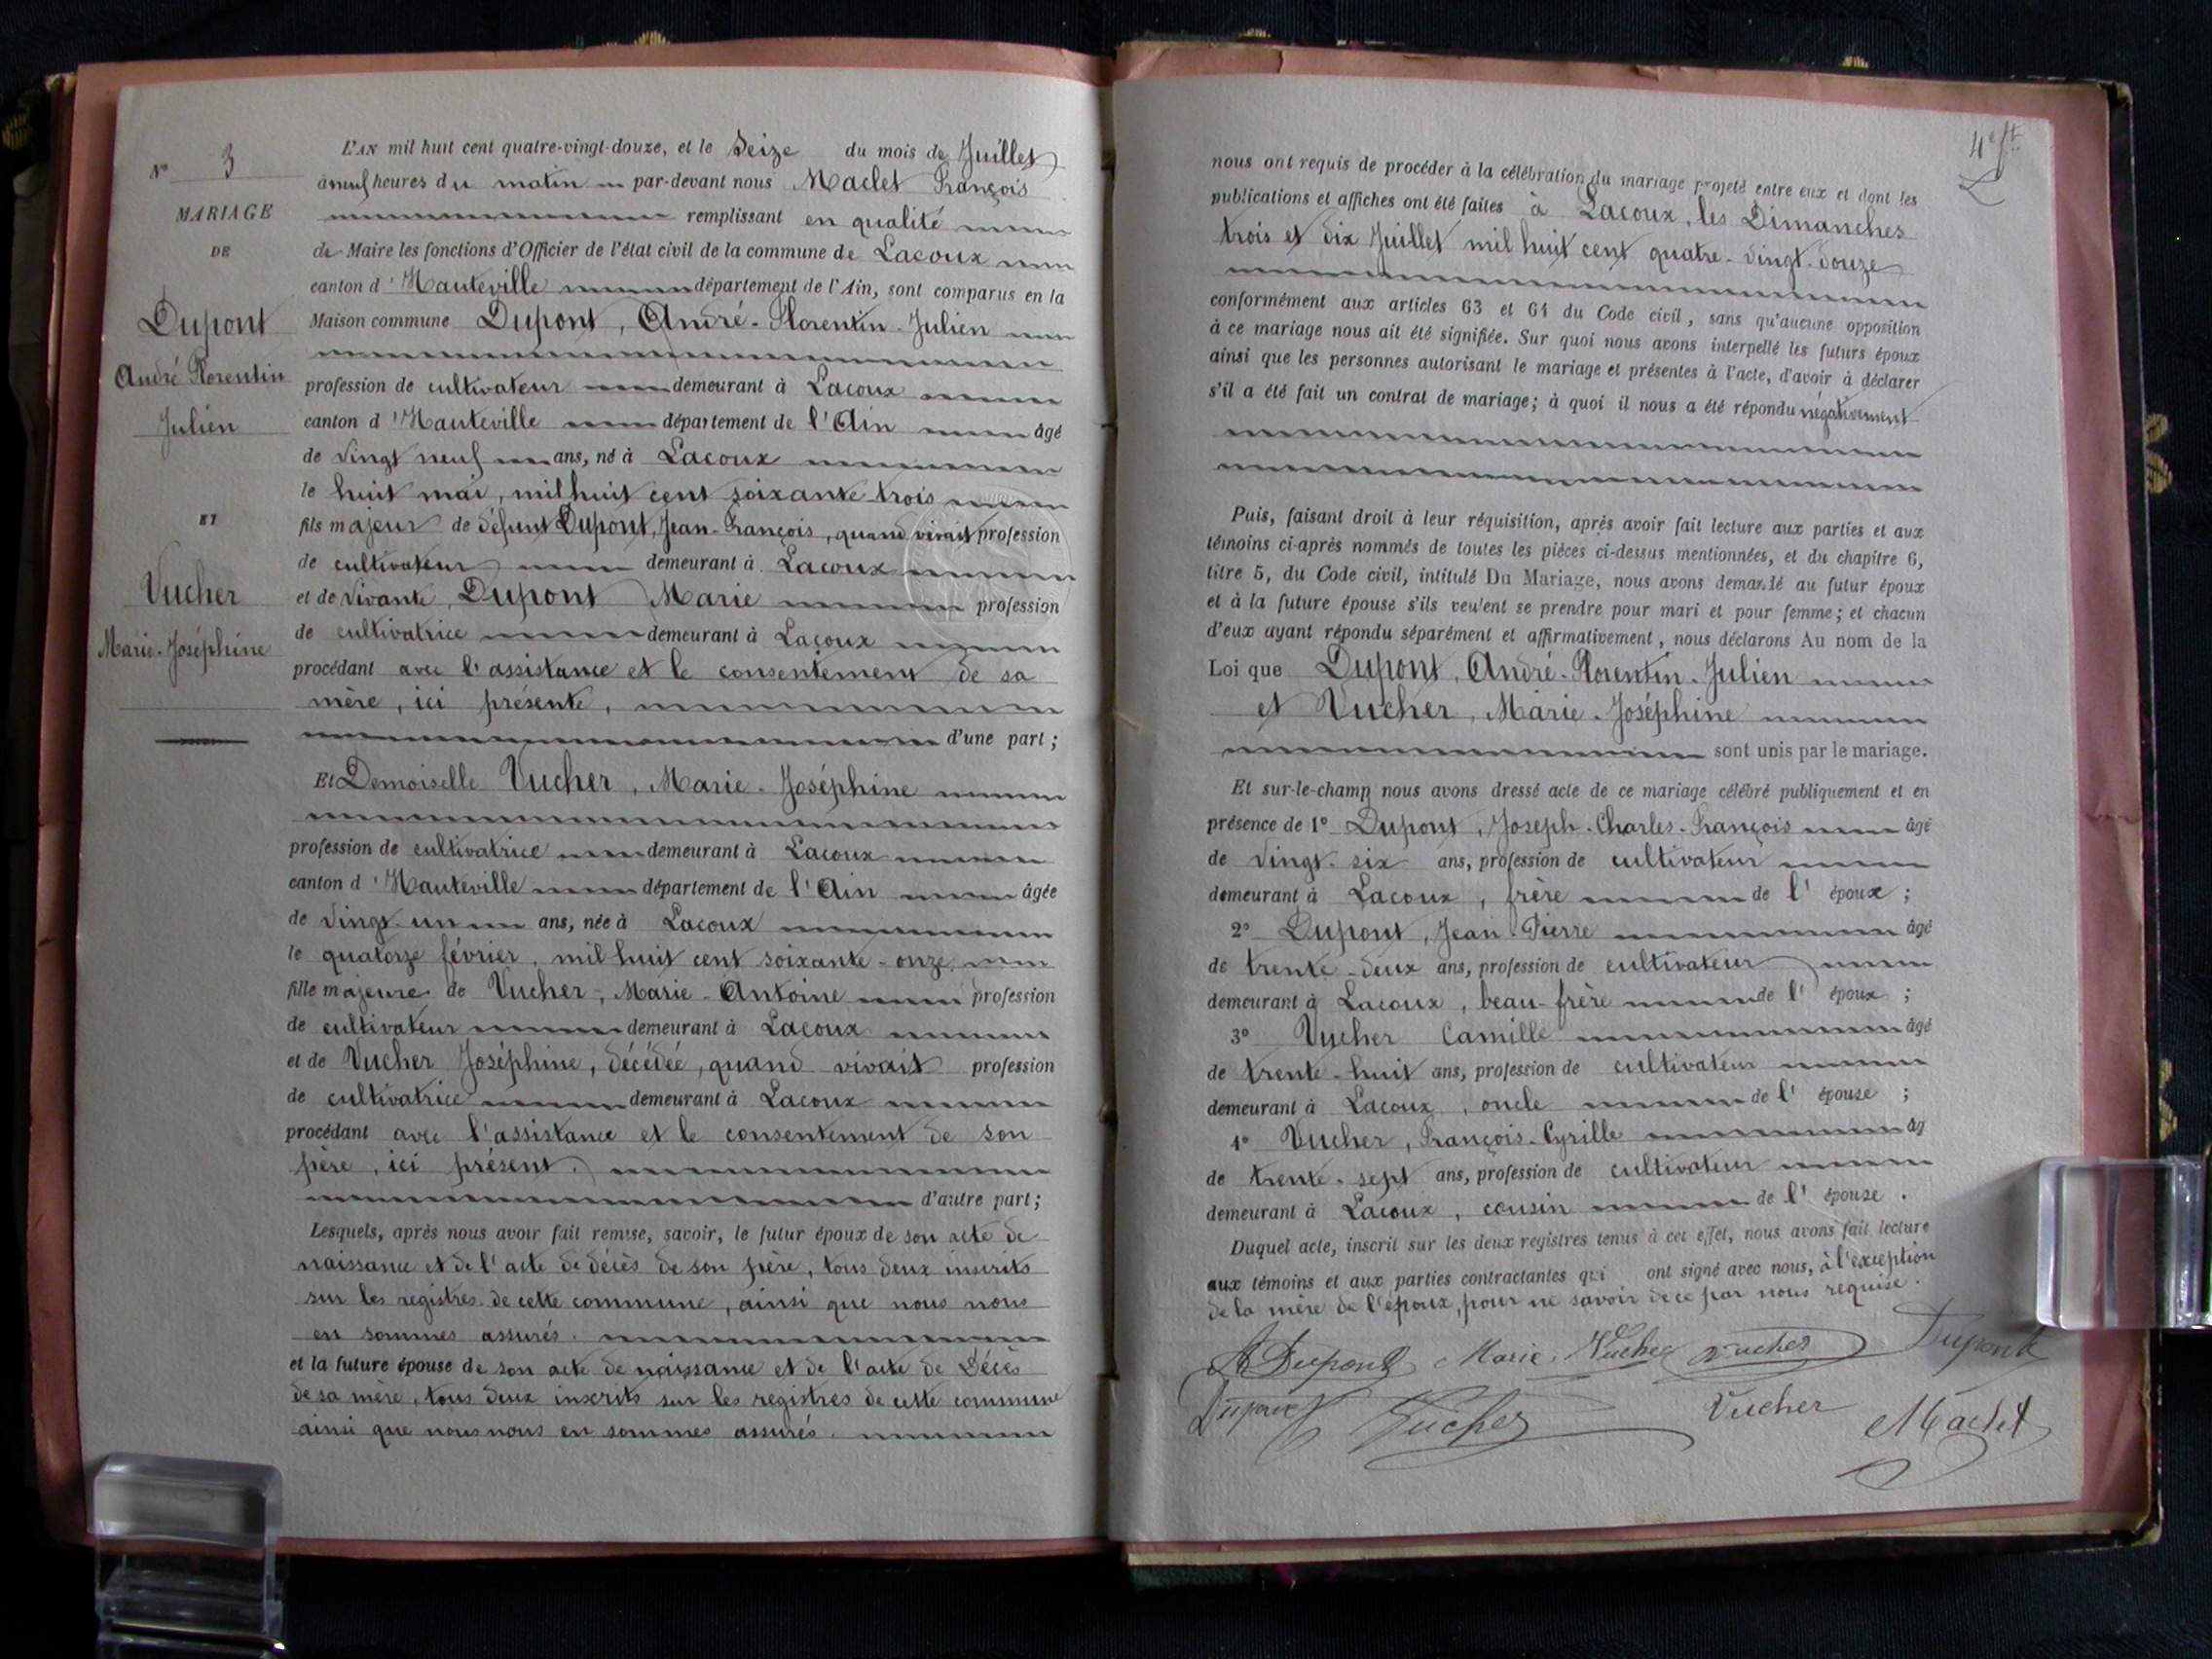 N° 3
MARIAGE
DE
Dupont
André Florentin
Julien
ET
Vucher
Marie-Joséphine
L'AN mil huit cent quatre-vingt-douze, et le Seize du mois de Juillet
à neuf heures du matin par-devant nous Maclet François
remplissant en qualité
de Maire les fonctions d'Officier de l'état civil de la commune de Lacoux
canton d'Hauteville département de l'Ain, sont comparus en la
Maison commune Dupont, André-Florentin-Julien
profession de cultivateur demeurant à Lacoux
canton d'Hauteville département de l'Ain âgé
de vingt neuf ans, né à Lacoux
le huit mai, mil huit cent soixante-trois
fils majeur de défunt Dupont, Jean-François, quand vivait profession
de cultivateur demeurant à Lacoux
et de vivante, Dupont Marie profession
de cultivatrice demeurant à Lacoux
procédant avec l'assistance et le consentement de sa
mère, ici présente,
d'une part;
Et Demoiselle Vucher, Marie-Joséphine
profession de cultivatrice demeurant à Lacoux
canton d'Hauteville département de l'Ain âgée
de vingt-un ans, née à Lacoux
le quatorze février, mil huit cent soixante-onze,
fille majeure de Vucher, Marie-Antoine profession
de cultivateur demeurant à Lacoux
et de Vucher Joséphine, décédée, quand vivait profession
de cultivatrice demeurant à Lacoux
procédant avec l'assistance et le consentement de son
père, ici présent.
d'autre part;
Lesquels, après nous avoir fait remise, savoir, le futur époux de son acte de
naissance et de l'acte de décès de son père, tous deux inscrits
sur les registres de cette commune, ainsi que nous nous
en sommes assurés.
et la future épouse de son acte de naissance et de l'acte de Décès
de sa mère, tous deux inscrits sur les registres de cette commune
ainsi que nous nous en sommes assurés.
nous ont requis de procéder à la célébration du mariage projeté entre eux et dont les
publications et affiches ont été faites à Lacoux, les Dimanches
trois et dix Juillet mil huit cent quatre-vingt-douze
conformément aux articles 63 et 64 du Code civil, sans qu'aucune opposition
à ce mariage nous ait été signifiée. Sur quoi nous avons interpellé les futurs époux
ainsi que les personnes autorisant le mariage et présentes à l'acte, d'avoir à déclarer
s'il a été fait un contrat de mariage; à quoi il nous a été répondu négativement
Puis, faisant droit à leur réquisition, après avoir fait lecture aux parties et aux
témoins ci-après nommés de toutes les pièces ci-dessus mentionnées, et du chapitre 6,
titre 5, du Code civil, intitulé Du Mariage, nous avons demandé au futur époux
et à la future épouse s'ils veulent se prendre pour mari et pour femme; et chacun
d'eux ayant répondu séparément et affirmativement, nous déclarons Au nom de la
Loi que Dupont, André-Florentin-Julien
et Vucher, Marie-Joséphine
sont unis par le mariage.
Et sur-le-champ nous avons dressé acte de ce mariage célébré publiquement et en
présence de 1° Dupont, Joseph-Charles-François âgé
de vingt-six ans, profession de cultivateur
demeurant à Lacoux, frère de l'époux;
2° Dupont, Jean-Pierre âgé
de trente-deux ans, profession de cultivateur
demeurant à Lacoux, beau-frère de l'époux;
3° Vucher Camille âgé
de trente-huit ans, profession de cultivateur
demeurant à Lacoux, oncle de l'épouse;
4° Vucher, François-Cyrille âg
de trente-sept ans, profession de cultivateur
demeurant à Lacoux, cousin de l'épouse.
Duquel acte, inscrit sur les deux registres tenus à cet effet, nous avons fait lecture
aux témoins et aux parties contractantes qui ont signé avec nous, à l'exception
de la mère de l'époux, pour ne savoir de ce par nous requise.
A Dupont Marie Vucher Vucher Dupont
Dupont Vucher Vucher Maclet